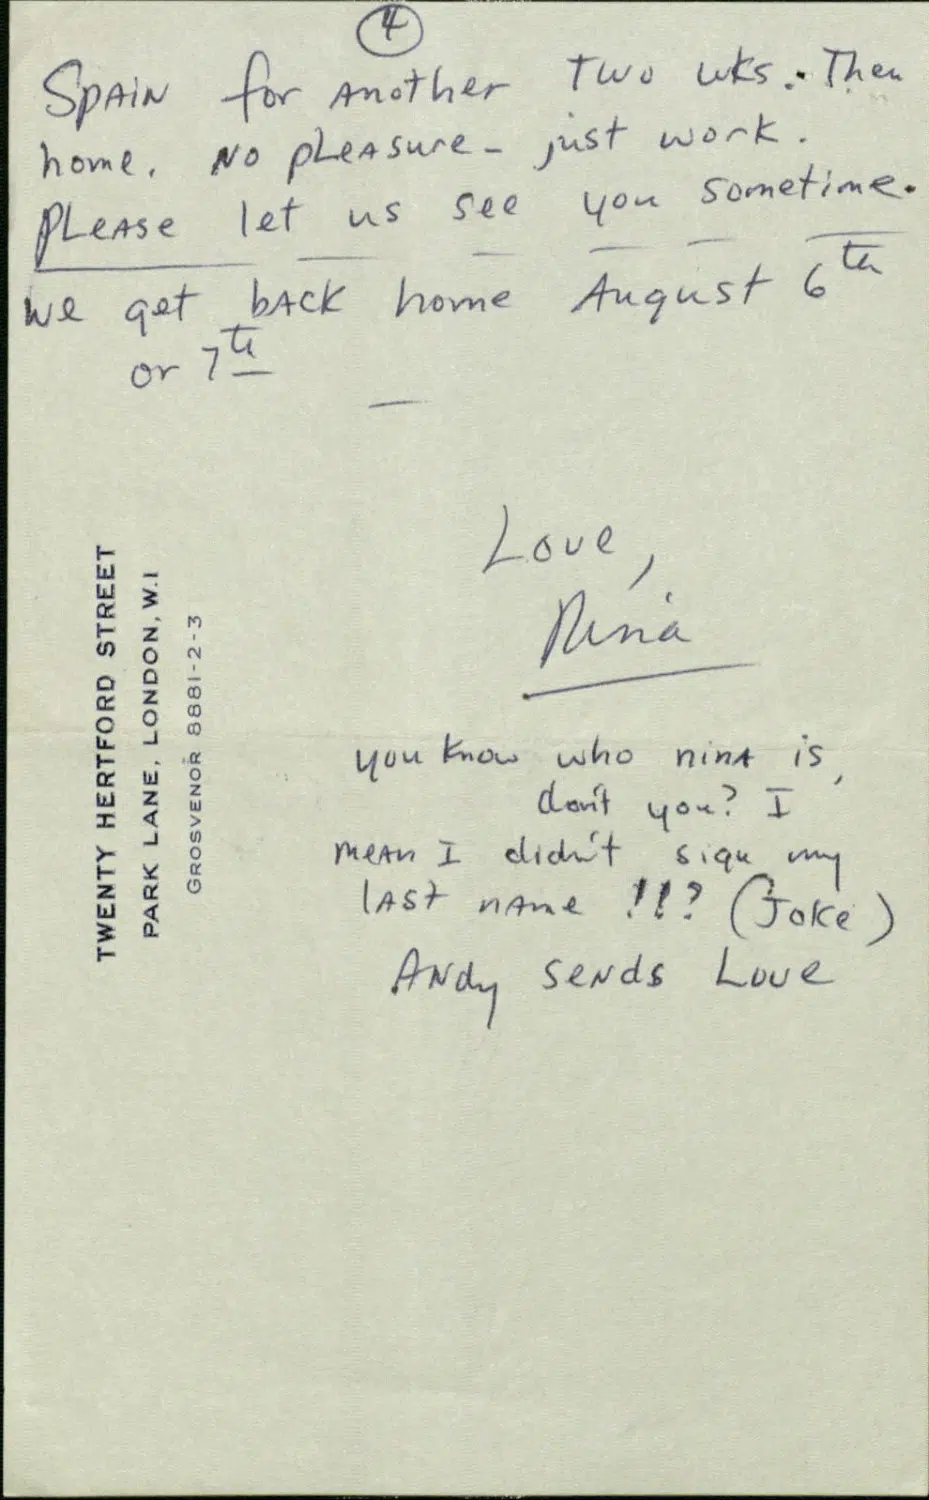 4
SPAIN for Another Two wks. Then
home. No pleasure - just work.
Please let us see you sometime.
We get bACK home August 6th
or 7th
Love,
Nina
you know who ninA is,
don't you? I
meAn I didn't sign my
lAst nAme !!? (Joke)
ANdy seNds Love
TWENTY HERTFORD STREET
PARK LANE, LONDON, W.1
GROSVENOR 8881-2-3